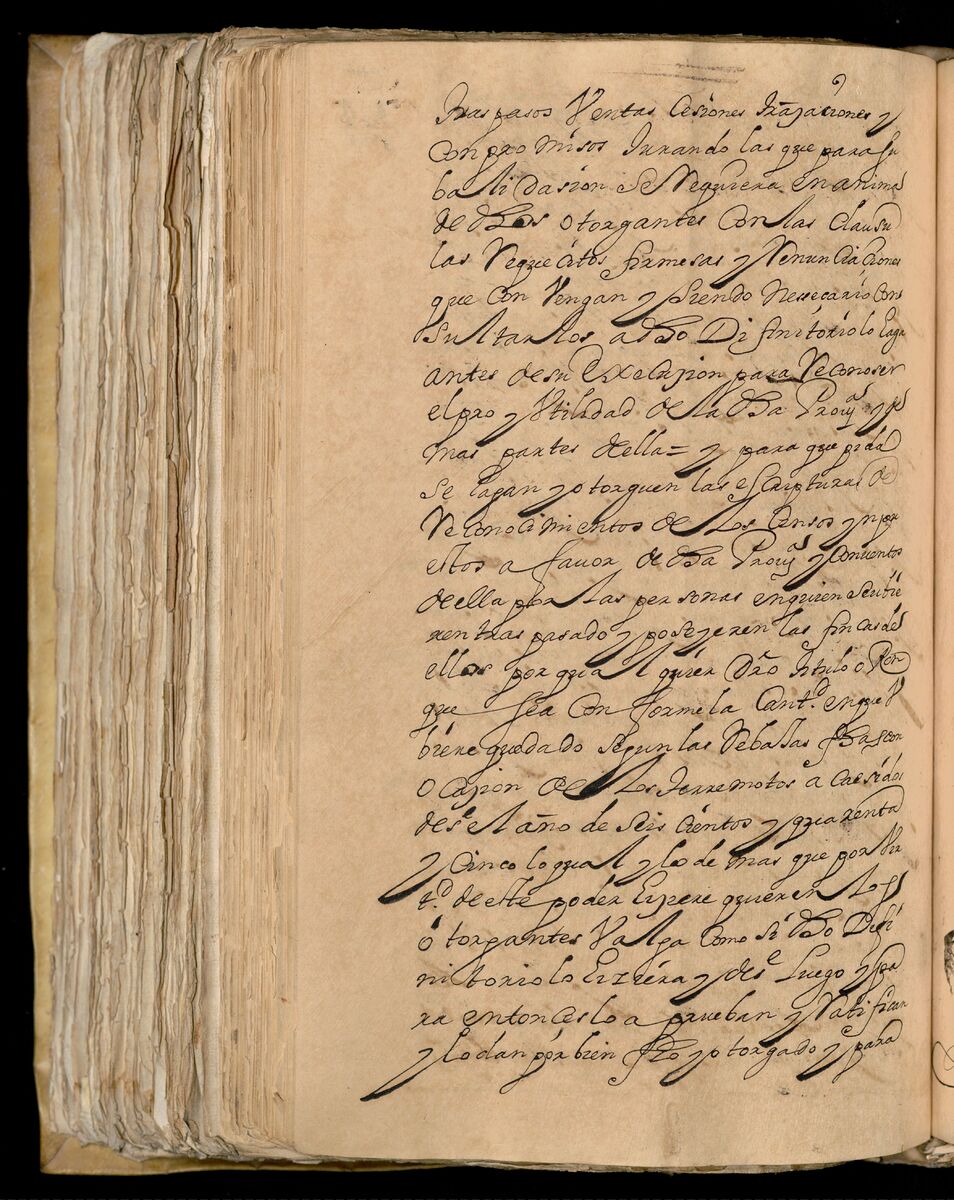 traspasos Ventas Cesiones trãsaciones y
Compromisos Jurando las que para su
balidasion Se Requiera en anima
de dhos otorgantes Con las Clausu
las Requecitos firmesas y Renunciaciones
que Con Vengan y Siendo Nesecario Con
Sultarlos a dho Difinitorio lo haga
antes de su Execusion para Reconoser
el pro y Utilidad de la dha Prouª y de
mas partes della = y para que pida
Se hagan y otorguen las escripturas de
Reconocimientos de Los Censos ympu
estos a favor de dha Prouª y Conventos
de ella por las personas en quien Se ubie
ren tras pasado y poseyeren las fincas de
ellos por qualquier Dro titulo o Ron
que sea Conforme la Cantd. en que V
biere quedado Segun las Rebajas fhas con
Ocasion de Los terremotos a Caesidos
desde el año de Seis cientos y quarenta
y Cinco lo qual y lo de mas que por Vir
td. de este poder hisiere quieren Los
otorgantes Valga Como si dho Difi
nitorio lo hiziera y desde Luego y pa
ra entonces lo a prueban y Ratifican
y lo dan por bien fho y otorgado y para